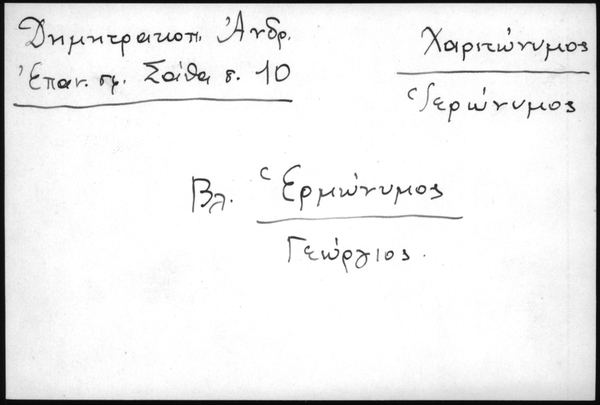 Δημητρακοπ. Ἀνδρ.
Ἐπαν. σφ. Σάθα σ. 10
Χαριτώνυμος
Ἱερώνυμος
Βλ. Ἑρμώνυμος
Γεώργιος.